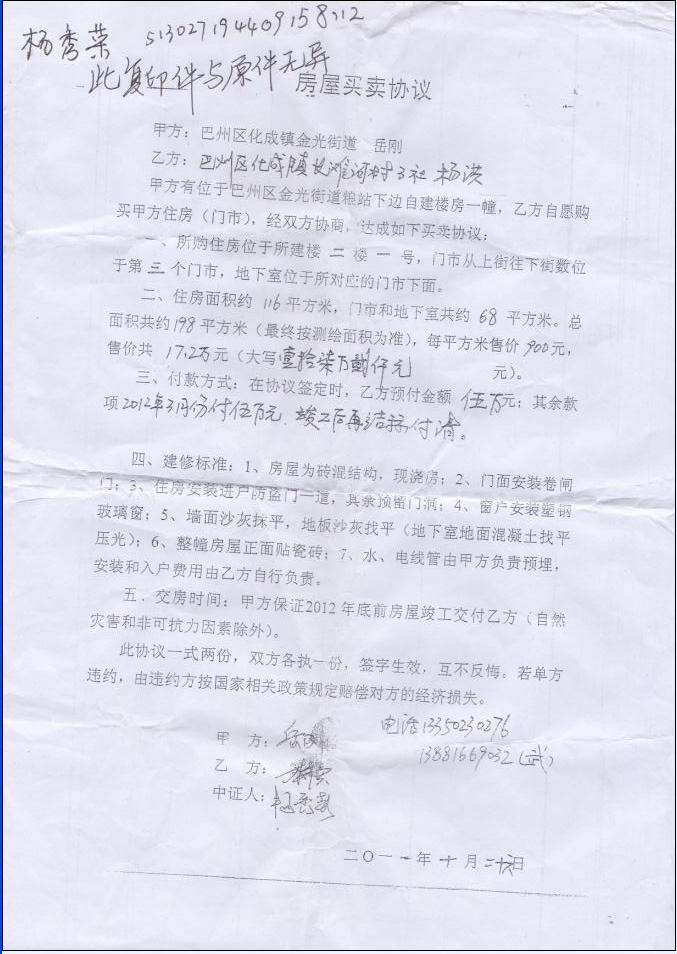 杨秀荣 513027194409158212
此复印件与原件无异
房屋买卖协议
甲方：巴州区化成镇金光街道 岳刚
乙方：巴州区化成镇长滩河村3社 杨洪
甲方有位于巴州区金光街道粮站下边自建楼房一幢，乙方自愿购
买甲方住房（门市），经双方协商，达成如下买卖协议：
一、所购住房位于所建楼 二 楼 一 号，门市从上街往下街数位
于第 三 个门市，地下室位于所对应的门市下面。
二、住房面积约 116 平方米，门市和地下室共约 68 平方米。总
面积共约198 平方米（最终按测绘面积为准），每平方米售价 900元，
售价共 17.2万元（大写壹拾柒万贰仟元 元）。
三、付款方式：在协议签定时，乙方预付金额 伍万元；其余款
项2012年3月份付伍万元．竣工后再结 付清。
四、建修标准：1、房屋为砖混结构，现浇房；2、门面安装卷闸
门；3、住房安装进户防盗门一道，其余预留门洞；4、窗户安装塑钢
玻璃窗；5、墙面沙灰抹平，地板沙灰找平（地下室地面混凝土找平
压光）；6、整幢房屋正面贴瓷砖；7、水、电线管由甲方负责预埋，
安装和入户费用由乙方自行负责。
五．交房时间：甲方保证2012 年底前房屋竣工交付乙方（自然
灾害和非可抗力因素除外）。
此协议一式两份，双方各执一份，签字生效，互不反悔。若单方
违约，由违约方按国家相关政策规定赔偿对方的经济损失。
电话13350230276
甲 方：岳刚
13881669032（武）
乙 方：
中证人：杨秀荣
二〇一一年 十 月 二十六日